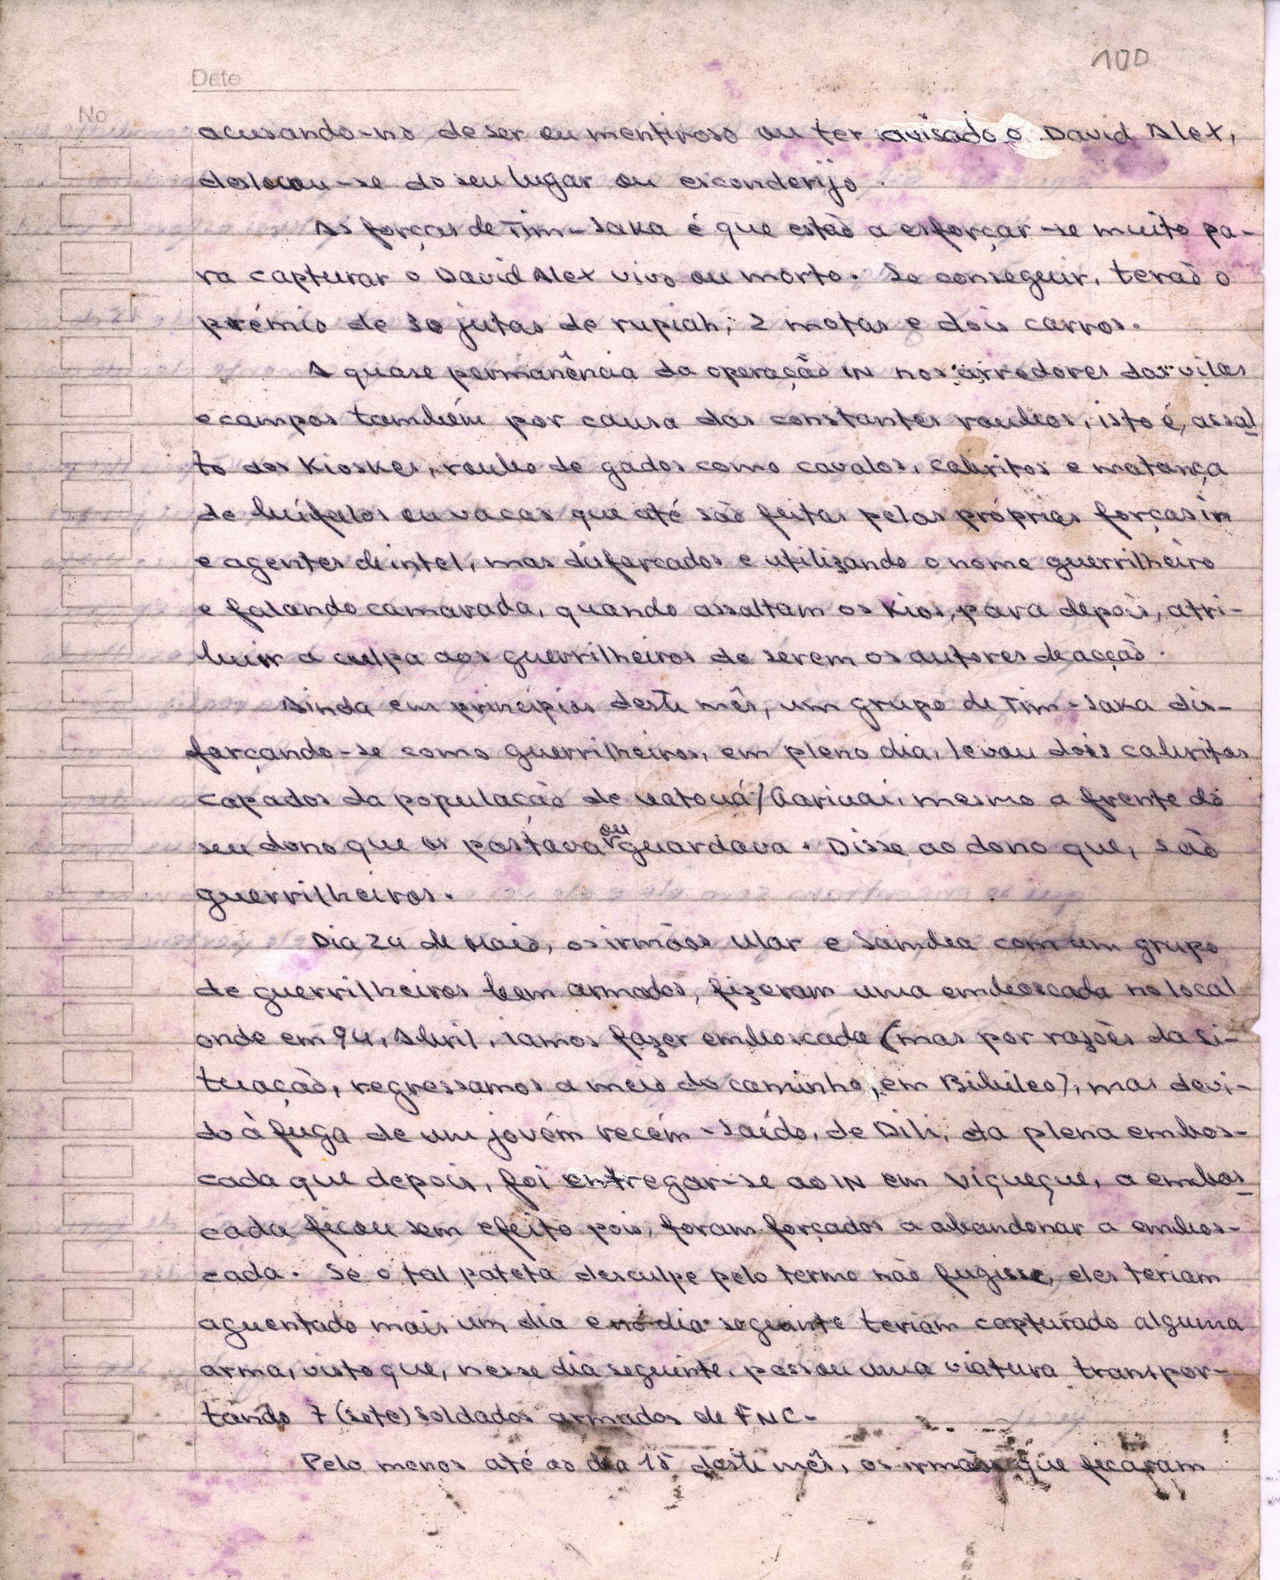 100
Date
No
acusando-no de ser eu mentiroso ou ter avisado o David Alex,
deslocou-se do seu lugar ou esconderijo.
As forças de Tim-Saka é que estão a esforçar-se muito pa-
ra capturar o David Alex vivo ou morto. Se conseguir, terão o
prémio de 30 jutas de rupiah, 2 motas e dois carros.
A quase permanência da operação IN nos arredores das vilas
e campos também por causa das constantes roubos, isto é, assal
to dos Kioskes, roubo de gados como cavalos, cabritos e matança
de búfalos ou vacas que até são feitas pelas próprias forças in
e agentes de intel, mas disfarçados e utilizando o nome guerrilheiro
e falando camarada, quando assaltam os Kios, para depois, atri-
buir a culpa aos guerrilheiros de serem os autores de acção.
Ainda em princípios deste mês, um grupo de Tim-Saka dis-
farçando-se como guerrilheiros, em pleno dia, levou dois cabritos
capados da população de Uatouá/Gariuai, mesmo a frente do
seu dono que os pastava ou guardava. Disse ao dono que, são
guerrilheiros.
Dia 24 de Maio, os irmãos Ular e Samdea com um grupo
de guerrilheiros bem armados, fizeram uma emboscada no local
onde em 94, Abril, iamos fazer emboscada (mas por razões da si-
tuação, regressamos a meio do caminho, em Bibileo), mas devi-
do à fuga de um jovém recém-saído, de Dili, da plena embos-
cada que depois, foi entregar-se ao IN em Viqueque, a embos
cada ficou sem efeito pois, foram forçados a abandonar a embos-
cada. Se o tal pateta desculpe pelo termo não fugisse, eles teriam
aguentado mais um dia e no dia seguinte teriam capturado alguma
arma, visto que, nesse dia seguinte, passou uma viatura transpor-
tando 7 (sete) soldados armados de FNC-
Pelo menos até ao dia 15 deste mês, os irmãos que ficaram